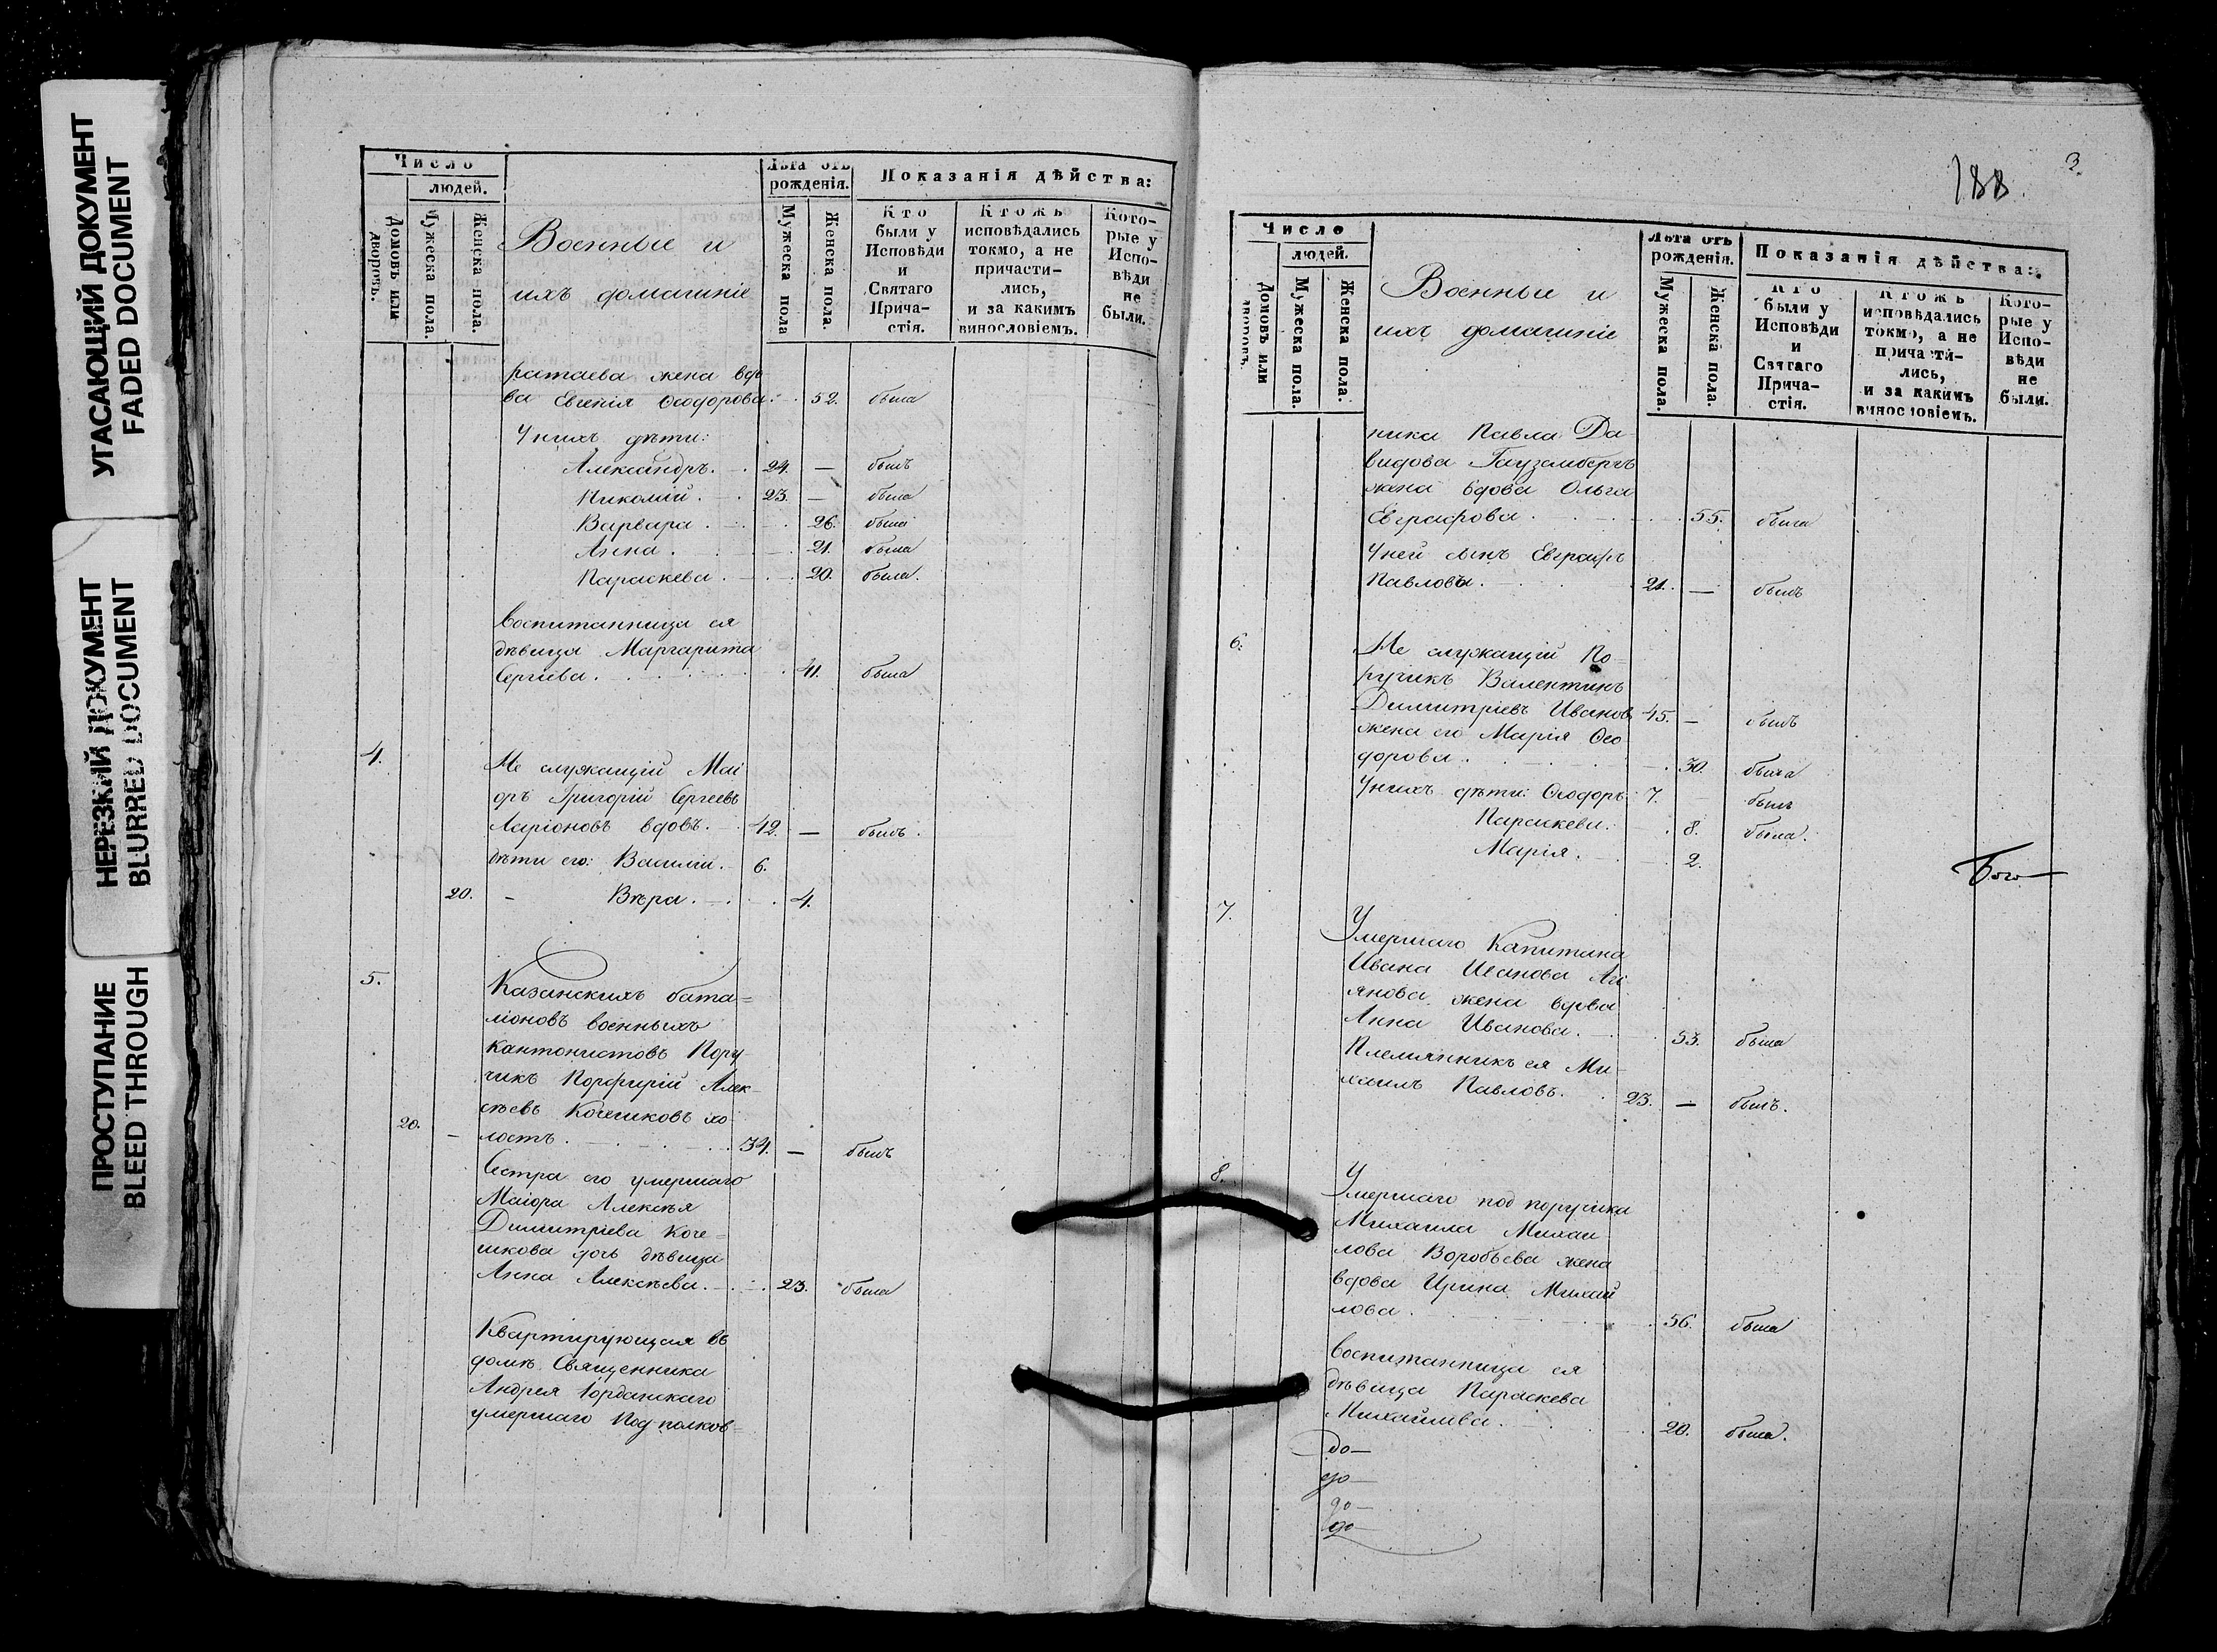 УГАСАЮЩИЙ ДОКУМЕНТ
FADED DOCUMENT
НЕРЕЗКИЙ ДОКУМЕНТ
BLURRED DOCUMENT
ПРОСТУПАНИЕ
BLEED THROUGH
Число
людей.
Домовъ или дворовъ.
Мужеска пола.
Женска пола.
Военные и
ихъ домашніе
Лѣта отъ
рожденія.
Мужеска пола
Женска пола.
Показанія дѣйства:
Кто
были у
Исповѣди
и
Святаго
Прича-
стія.
Ктожъ
исповѣдались
токмо, а не
причасти-
лись,
и за какимъ
винословіемъ.
Кото-
рые у
Испо-
вѣди
не
были.
ратаева жена вдо
ва Евгенія Ѳеодорова. 52. была
У нихъ дѣти:
Александръ. 24. — былъ
Николай. 23. — была
Варвара. 26. была
Анна. 21. была
Параскева. 20. была.
Воспитанница ея
дѣвица Маргарита
Сергіева. 41. была
4. Не служащій Маі
оръ Григорій Сергеевъ
Ларіоновъ вдовъ. 42. — былъ.
дѣти его: Василій. 6.
20. — Вѣра. 4.
5. Казанскихъ бата=
ліоновъ военныхъ
кантонистовъ Пору
чикъ Порфирій Алек-
сѣевъ Кочешковъ хо
20. — лостъ. 34. — былъ
Сестра его умершаго
Маіора Алексѣя
Димитріева Коче=
шкова дочь дѣвица
Анна Алексѣева. 23. была
Квартирующая въ
домѣ Священника
Андрея Іорданскаго
умершаго Подполков=
188. 3.
Число
людей.
Домовъ или дворовъ.
Мужеска пола.
Женска пола.
Военные и
ихъ домашніе
Лѣта отъ
рожденія.
Мужеска пола.
Женска пола.
Показанія дѣйства:
Кто
были у
Исповѣди
и
Святаго
Прича-
стія.
Ктожъ
исповѣдались
токмо, а не
причасти-
лись,
и за какимъ
винословіемъ.
Кото-
рые у
Испо-
вѣди
не
были.
ника Павла Да-
видова Гаузембергъ
жена вдова Ольга
Евграфова. 55. была
У ней сынъ Евграфъ
Павлова. 21. — былъ
6. Не служащій По=
ручикъ Валентинъ
Димитріевъ Иванов 45. — былъ
жена его Марія Ѳео
дорова. 30. была
У нихъ дѣти: Ѳеодоръ 7. — былъ
Параскева. 8. была.
Марія. 2.
7. Умершаго Капитана
Ивана Иванова
янова жена вдова
Анна Иванова. 53. была
Племянникъ ея Ми-
хаилъ Павловъ. 23. — былъ.
8. Умершаго под поручика
Михаила Михаи
лова Воробьева жена
вдова Ирина Михай
лова. 56. была
Воспитанница ея
дѣвица Параскева
Михайлова. 20. была.
до—
до—
до—
до—